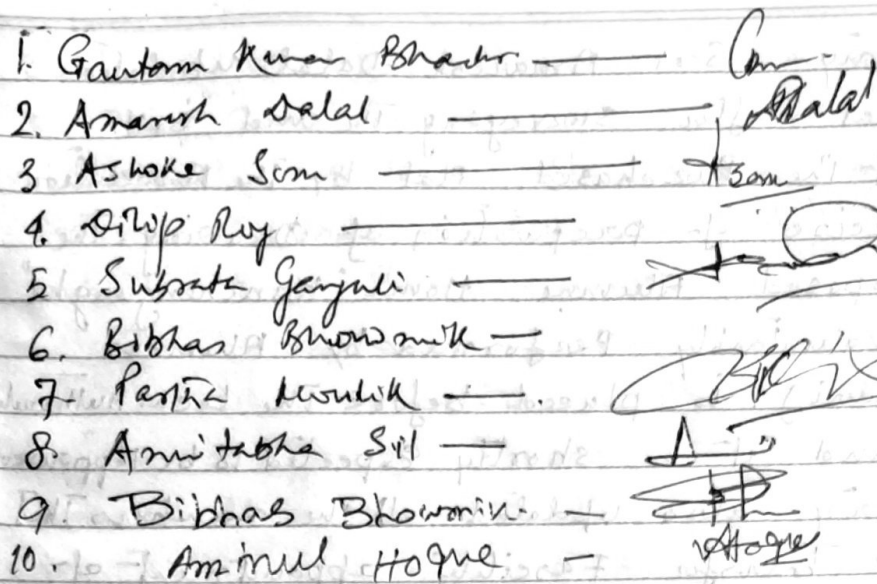 1. Gautam Kumar Bhadra
2. Amaresh Dalal ADalal
3 Ashoke Som Asom
4. Dilip Roy
5 Subrata Ganguli
6. Bibhas Bhowmik
7. Partha Moulik
8. Amitabha Sil
9 Bibhas Bhowmik
10. Aminul Hoque AHoque